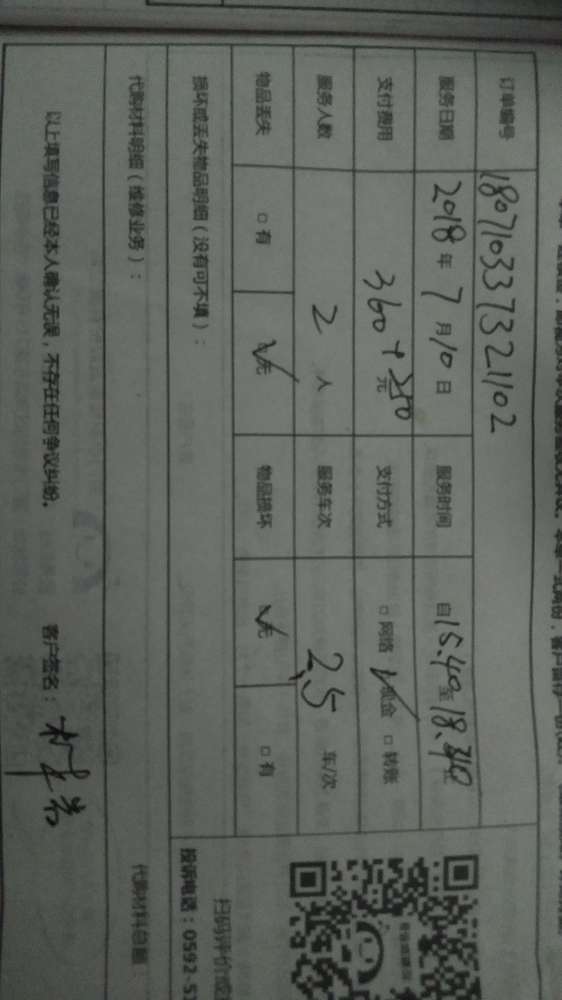 订单编号 180710337321102
服务日期 2018年7月10日 服务时间 自15.40至18.40
支付费用 360+250元 支付方式 □网络 ✓现金 □转账
服务人数 2人 服务车次 2.5车/次
物品丢失 □有 ✓无 物品损坏 ✓无 □有
损坏或丢失物品明细（没有可不填）：
代购材料明细（维修业务）： 代购材料总额
以上填写信息已经本人确认无误，不存在任何争议纠纷。 客户签名：
扫码评价或
投诉电话：0592-5